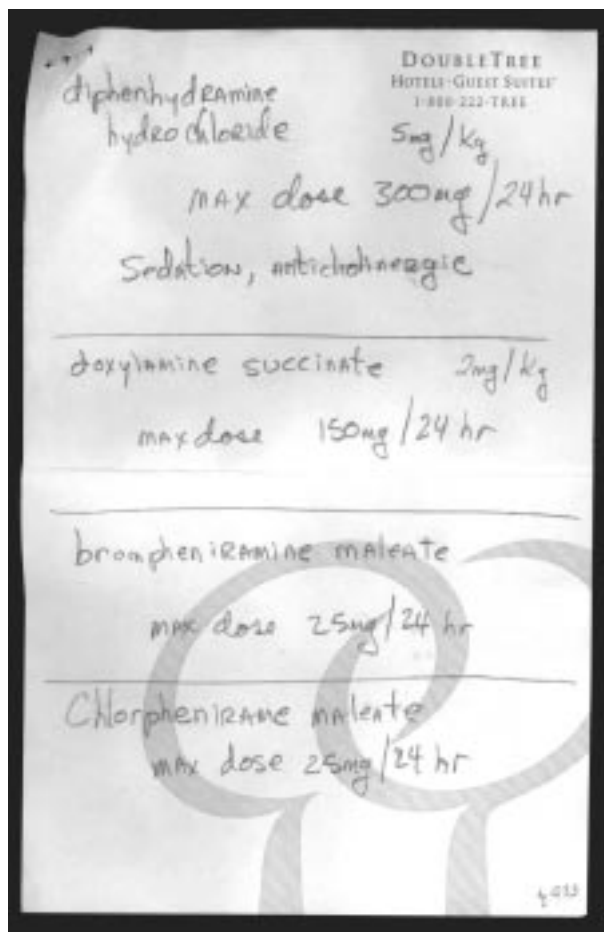 DOUBLETREE
HOTELS·GUEST SUITES
1-800-222-TREE
diphenhydramine
hydrochloride 5mg/kg
max dose 300mg/24hr
Sedation, anticholinergic
doxylamine succinate 2mg/kg
max dose 150mg/24 hr
brompheniramine maleate
max dose 25mg/24 hr
Chlorphenirame maleate
max dose 25mg/24 hr